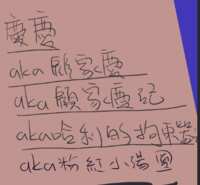 慶慶
aka顧家慶
aka顧家慶記
aka哈利的拘束器
aka粉紅小湯圓